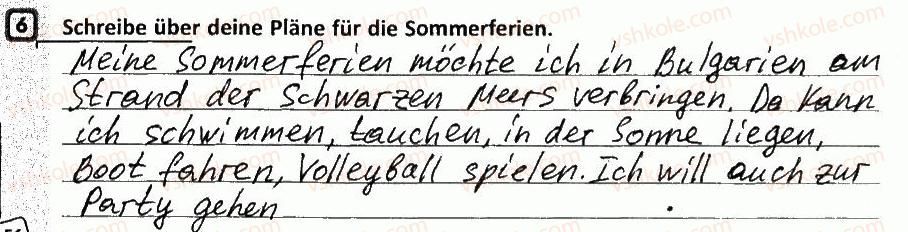 6 Schreibe über deine Pläne für die Sommerferien.
Meine Sommerferien möchte ich in Bulgarien am
Strand der Schwarzen Meers verbringen. Da kann
ich schwimmen, tauchen, in der Sonne liegen,
Boot fahren, Volleyball spielen. Ich will auch zur
Party gehen.